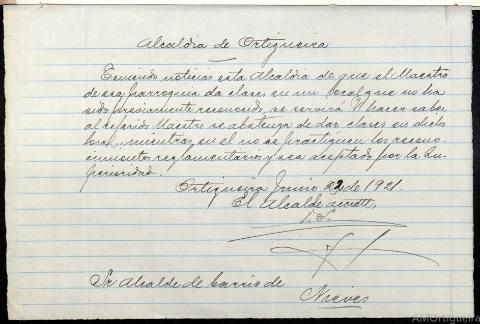 Alcaldia de Ortigueira
Teniendo noticias esta Alcaldia de que el Maestro
de esa parroquia da clases en un local que no ha
sido previamente reconocido, se servirá V. hacer saber
al referido Maestro se abstenga de dar clases en dicho
local, mientras en el no se practiquen los recono-
cimientos reglamentarios y sea aceptado por la Su-
perioridad.
Ortigueira Junio 22 de 1921
El Alcalde acctl,
Sr Alcalde de barrio de
Nieves
AMOrtigueira